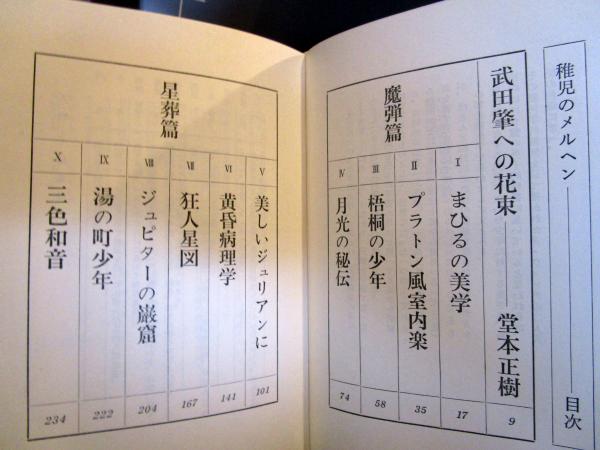 稚児のメルヘン――目次
武田肇への花束――堂本正樹 9
魔弾篇
Ⅰ まひるの美学 17
Ⅱ プラトン風室内楽 35
Ⅲ 梧桐の少年 58
Ⅳ 月光の秘伝 74
星葬篇
Ⅴ 美しいジュリアンに 101
Ⅵ 黄昏病理学 141
Ⅶ 狂人星図 167
Ⅷ ジュピターの巌窟 204
Ⅸ 湯の町少年 222
Ⅹ 三色和音 234